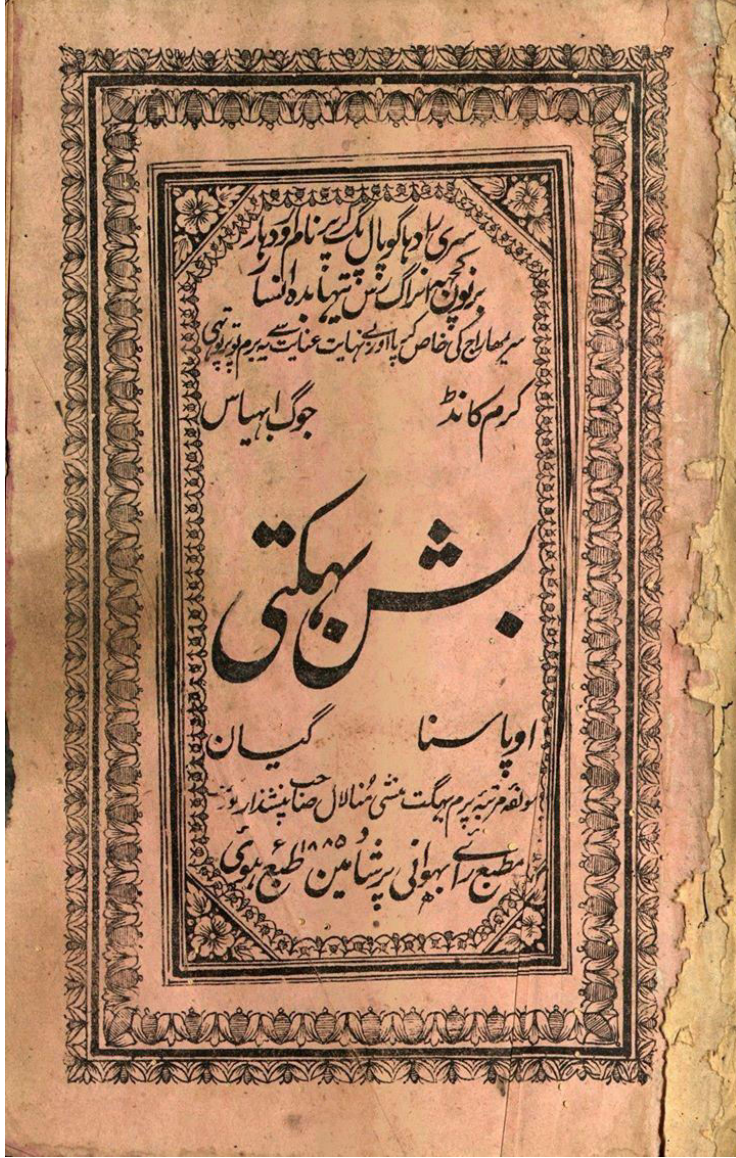 سری رادہا گوپال پگ کرپہ نام اور دہار
برنون کچہہ انراگ رس پنتہا بدہ انسار
سریمہاراج کی خاص کرپا اور بے نہایت عنایت سے یہ پرم پوتر پوتہی
کرم کانڈ جوگ ابہیاس
بشن بہکتی
اوپاسنا گیان
مولفہ مرتبہ پرم بہگت منشی منالال صاحب پنشنذار
مطبع رائے بہوانی پرشاد مین ۱۸۸۵ء طبع ہوئی